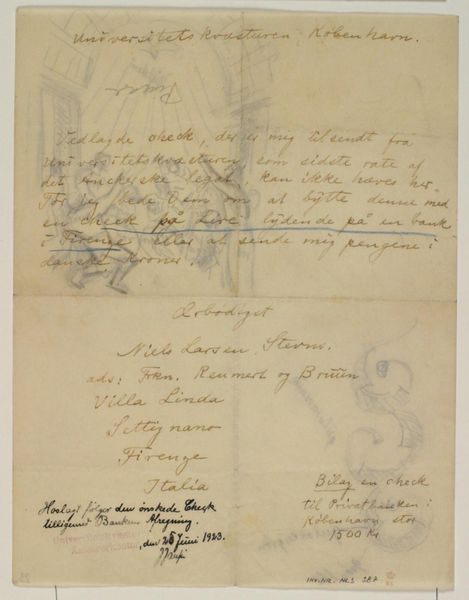 Universitetskvæsturen, København.
Vedlagde check, der er mig tilsendt fra
Universitetskvæsturen som sidste rate af
det Anckerske legat, kan ikke hæves her.
Tør jeg bede Dem om at bytte denne med
en check på Lire lydende på en bank
i Firenze eller at sende mig pengene i
danske Kroner.
Ærbødigst
Niels Larsen Stevns.
ads: Frkn. Reumert og Bruun
Villa Linda
Settignano
Firenze
Italia
Bilag en check
til Privatbanken i
København stor
1500 Kr
Hoslagt følger den ønskede Check
tilligemed Bankens Afregning.
den 26 Juni 1923.
INV. NR. NLS 287